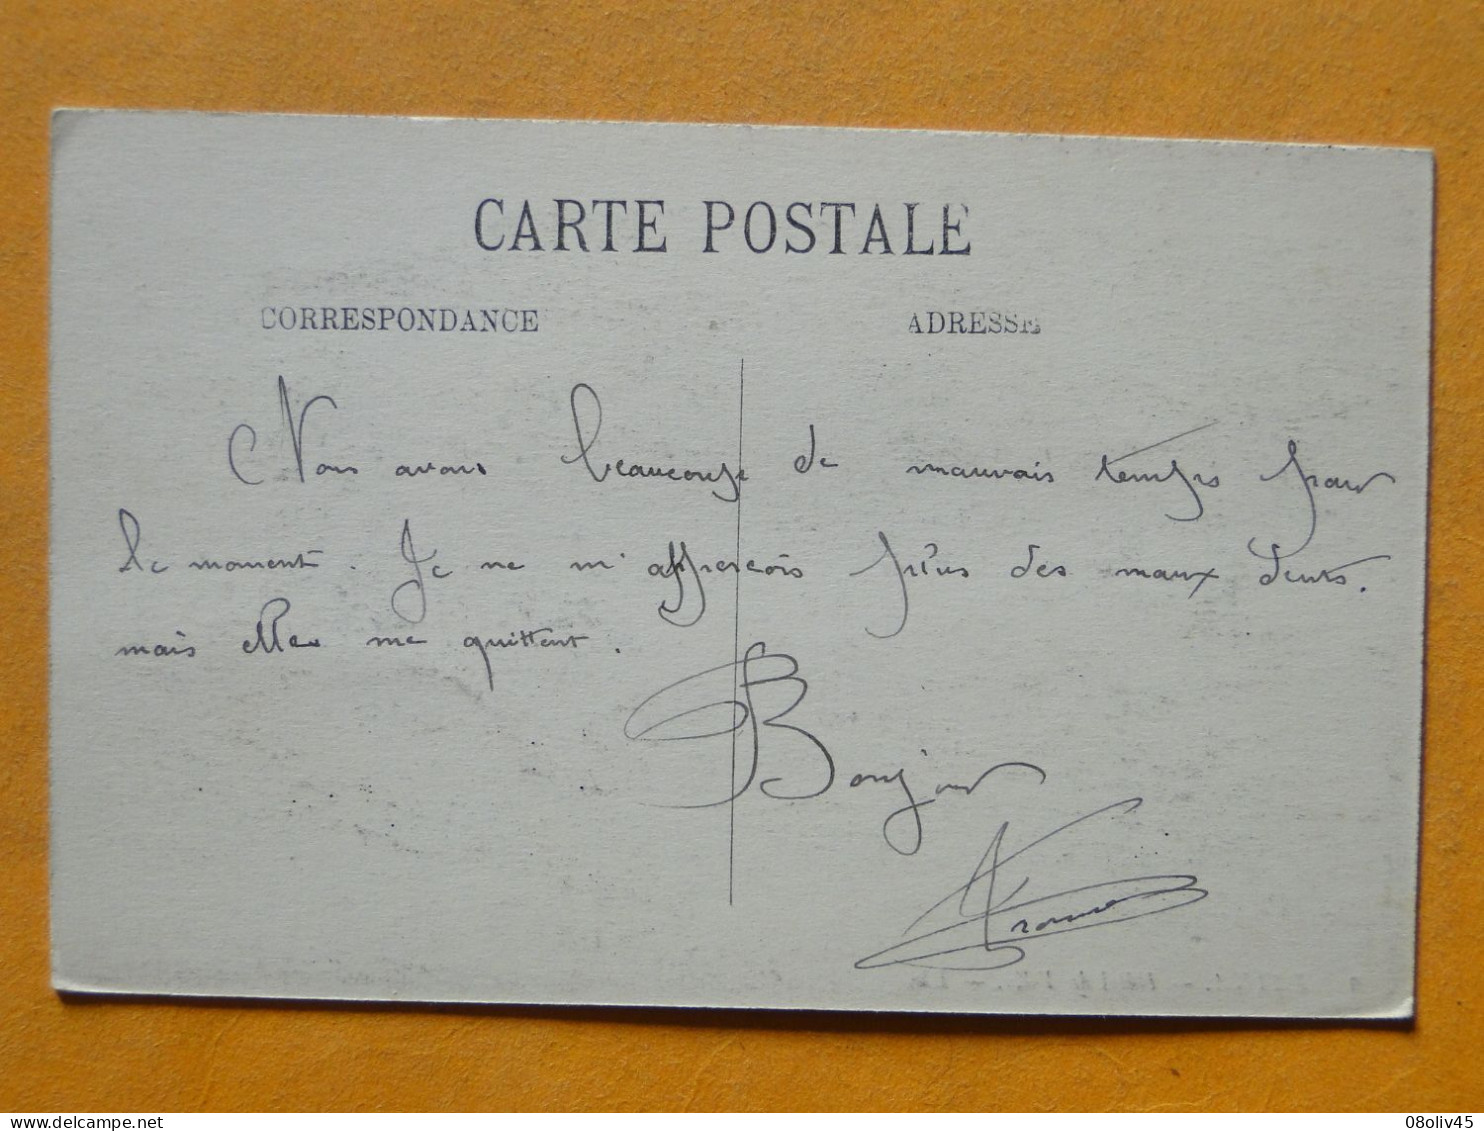 CARTE POSTALE
CORRESPONDANCE
ADRESSE
Nous avons beaucoup de mauvais temps pour
le moment. Je ne m'apperçois plus des maux dents.
mais elles me quittent.
Bonjour
08oliv45